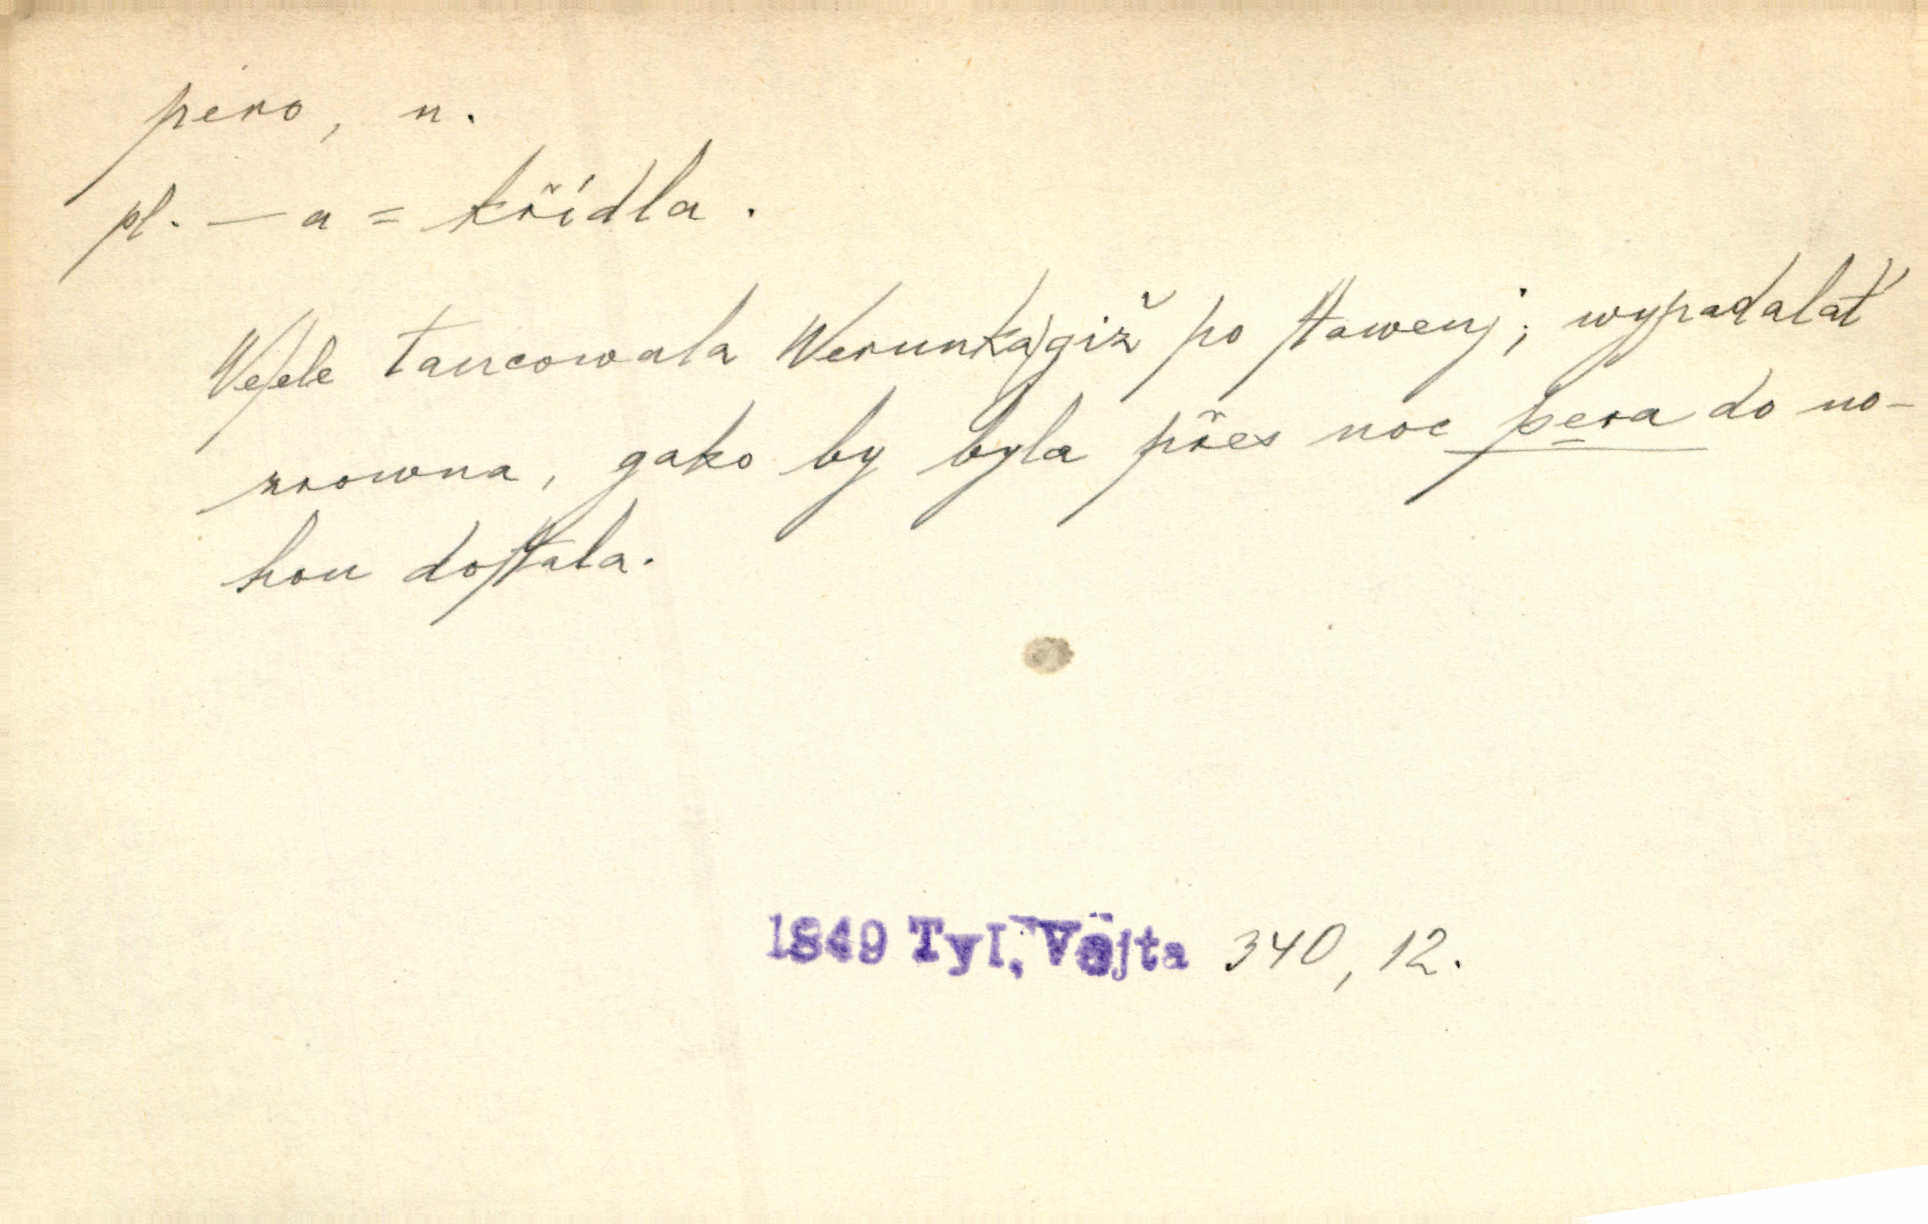 pero, n.
pl. — a = křídla.
Weſele tancowala Werunka giž po ſtawenj; wypadalať
zrowna, gako by byla přes noc pera do no-
hou doſtala.
1849 Tyl, Vojta 340, 12.